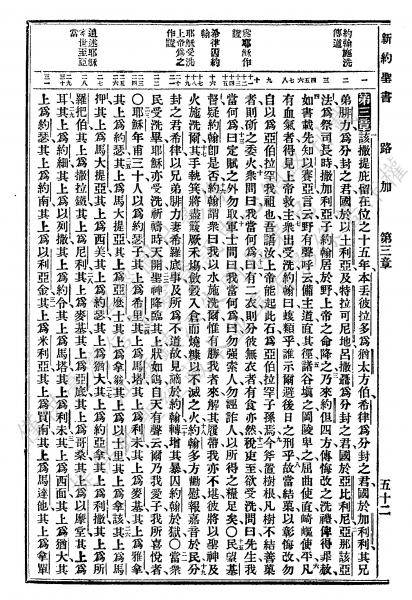 新約聖書 路加 第三章 五十二
約翰施洗傳道
希律囚約翰
耶穌受洗上帝爲之作證
追述耶穌世系至亞當
第三章該撒提庇留在位之十五年本丟彼拉多爲猶太方伯希律爲分封之君國於加利利其兄
弟腓力爲分封之君國於以土利亞及特拉可尼地呂撒聶爲分封之君國於亞比利尼亞那該亞
法爲祭司長時撒加利亞子約翰居於野上帝之命降之乃來約但四方傳悔改之洗禮俾得罪赦
如書載先知以賽亞言云野有聲呼云備主道直其徑諸谷填之岡陵卑之屈曲使直崎嶇使平凡
有血氣者得見上帝救主衆出受洗約翰曰蝮類乎誰示爾避後日之刑乎故當結果以彰悔改勿
自以爲亞伯拉罕我祖也吾語汝上帝能起此石爲亞伯拉罕子孫焉今斧置樹根凡樹不結善果
者則斫之委火衆問曰當何爲曰有二衣則分彼無衣者有食亦然稅吏至欲受洗問曰先生我
當何爲曰定賦之外勿取軍士問曰我當何爲曰勿強索人勿誣詐人以所得之糧足矣○民望基
督疑約翰卽是否約翰謂衆曰我以水施洗爾惟有勝我者來解其履帶我亦不堪彼將以聖神及
火施洗爾其手執箕將盡簸厥禾場斂穀入倉而燒糠以不滅之火約翰多方勸慰報嘉音於民分
封之君希律以兄弟腓力妻希羅底事及所爲不道故見譴於約翰轉增其暴囚約翰於獄○當衆
民受洗畢耶穌亦受洗祈禱時天開聖神降臨其上狀如鴿自天有聲云爾乃我愛子我所喜悅者
○耶穌年甫三十人以爲約瑟子其上爲希里其上爲馬塔其上爲利未其上爲麥基其上爲雅拿
其上爲約瑟其上爲馬大提亞其上爲亞麽士其上爲拿翁其上爲以士里其上爲拿該其上爲馬
押其上爲馬大提亞其上爲西美其上爲約瑟其上爲猶大其上爲約亞拿其上爲利撒其上爲所
羅把伯其上爲撒拉鐵其上爲尼利其上爲麥基其上爲亞底其上爲哥桑其上爲以摩堂其上爲
耳其上爲約細其上爲以列撒其上爲約令其上爲馬塔其上爲利未其上爲西面其上爲猶大其
上爲約瑟其上爲約南其上爲以利亞金其上爲米利亞其上爲買南其上爲馬達他其上爲拿單